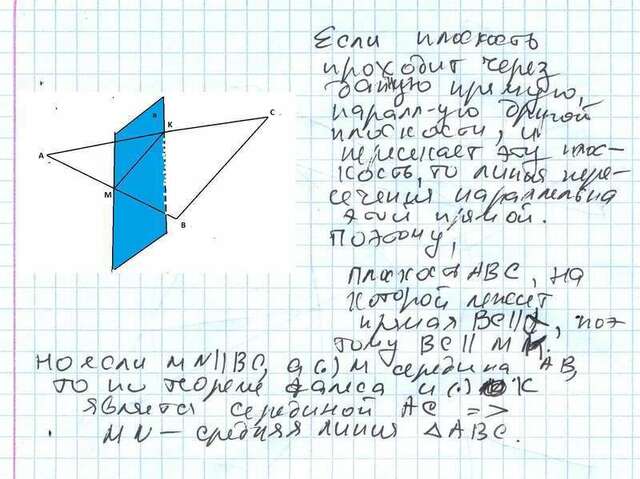 Если плоскость
проходит через
данную прямую,
паралл-ую другой
плоскости, и
пересекает эту плос-
кость, то линия пере-
сечения параллельна
этой прямой.
Поэтому,
плоскость ABC, на
которой лежит
прямая BC||α, поэ
тому BC || MK.
но если MN||BC, а (·) M середина AB,
то по теореме Фалеса и (·) K
является серединой AC =>
MN – средняя линия △ABC.
a
K
C
A
M
B